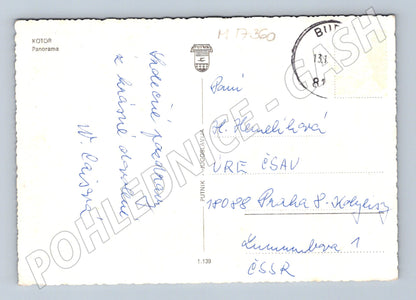 KOTOR
Panorama
M 17-360
Srdečné pozdravy
z krásné dovolené
PUTNIK JUGOSLAVIJA
1.139
BUD
13.
81
Paní
H.
ÚRE ČSAV
18088 Praha 8-Kobylisy
Lumumbova 1
ČSSR
POHLEDNICE - CASH